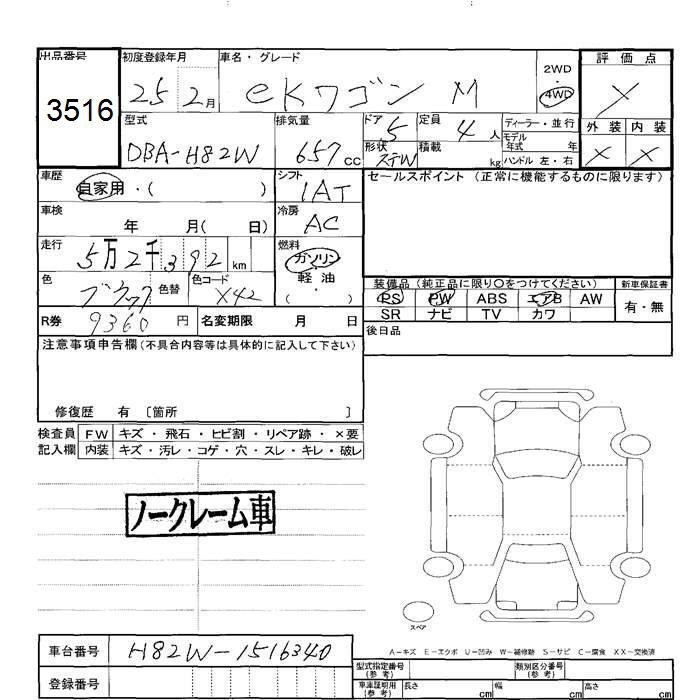 出品番号 初度登録年月 車名・グレード 2WD 評価点
3516 25 2月 eKワゴン M ・ 4WD ×
型式 排気量 ドア 5 定員 4人 ディーラー・並行 外装 内装
DBA-H82W 657cc 形状 ステW 積載 kg モデル年式 年 × ×
ハンドル 左・右
車歴 自家用・( ) シフト IAT セールスポイント (正常に機能するものに限ります)
車検 年 月( 日) 冷房 AC
走行 5万2千392 km 燃料 ガソリン
軽油
・( )
色 色替 色コード X42 装備品 (純正品に限り○をつけてください) 新車保証書
PS PW ABS エアB AW 有・無
R券 9360 円 名変期限 月 日 SR ナビ TV カワ
後日品
注意事項申告欄(不具合内容等は具体的に記入して下さい)
修復歴 有 〔箇所 〕
検査員 FW キズ・飛石・ヒビ割・リペア跡・×要
記入欄 内装 キズ・汚レ・コゲ・穴・スレ・キレ・破レ
ノークレーム車
スペア
A-キズ E-エクボ U-凹み W-補修跡 S-サビ C-腐食 XX-交換済
車台番号 H82W-1516340
型式指定番号(参考) 類別区分番号(参考)
登録番号 車庫証明用(参考) 長さ cm 幅 cm 高さ cm